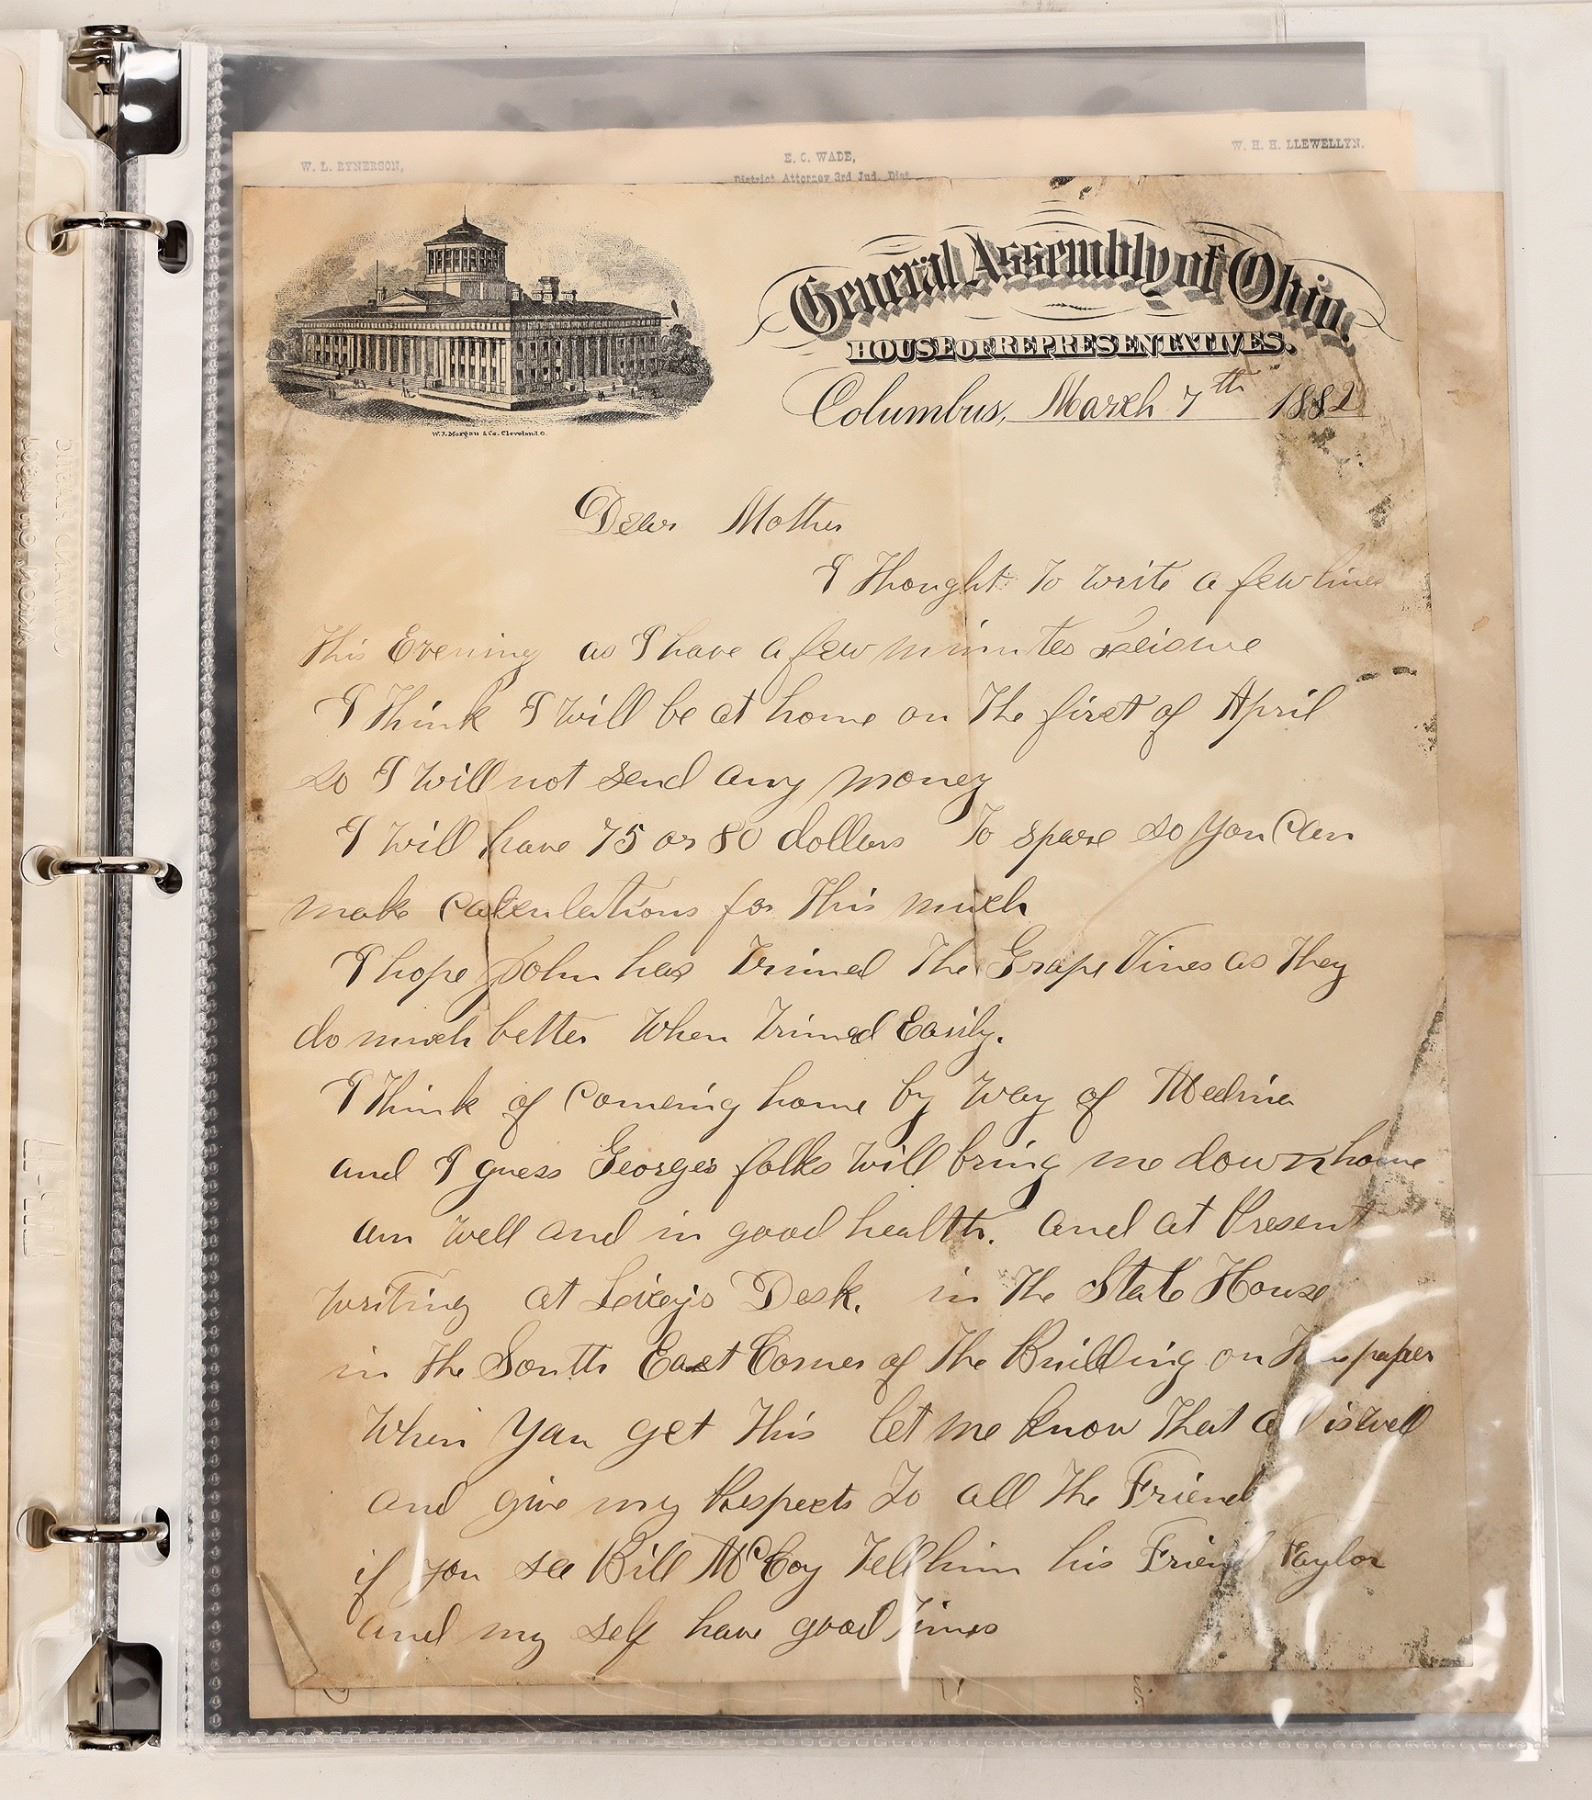 W. L. RYNERSON,
E. C. WADE,
W. H. H. LLEWELLYN.
District Attorney 3rd Jud. Dist.
General Assembly of Ohio,
HOUSE OF REPRESENTATIVES.
Columbus, March 7th 1882
W.J. Morgan & Co. Cleveland. O.
Dear Mother
I Thought To write a few lines
This Evening as I have a few minutes Leisure
I Think I will be at home on The first of April
so I will not send any money
I will have 75 or 80 dollars To spare so you Can
make Calculations for This much
I hope John has Trimed The Grape Vines as They
do much better When Trimed Easily.
I Think of Comeing home by way of Medina
and I guess Georges folks will bring me down home
am well and in good health. and at Present
writing at Desk. in The State House
in The South East Corner of The Building on This paper
When you get This let me know That all is well
and give my Respects To all The Friend
if you see Bill McCoy Tell him his Friend Taylor
and my self have good Times